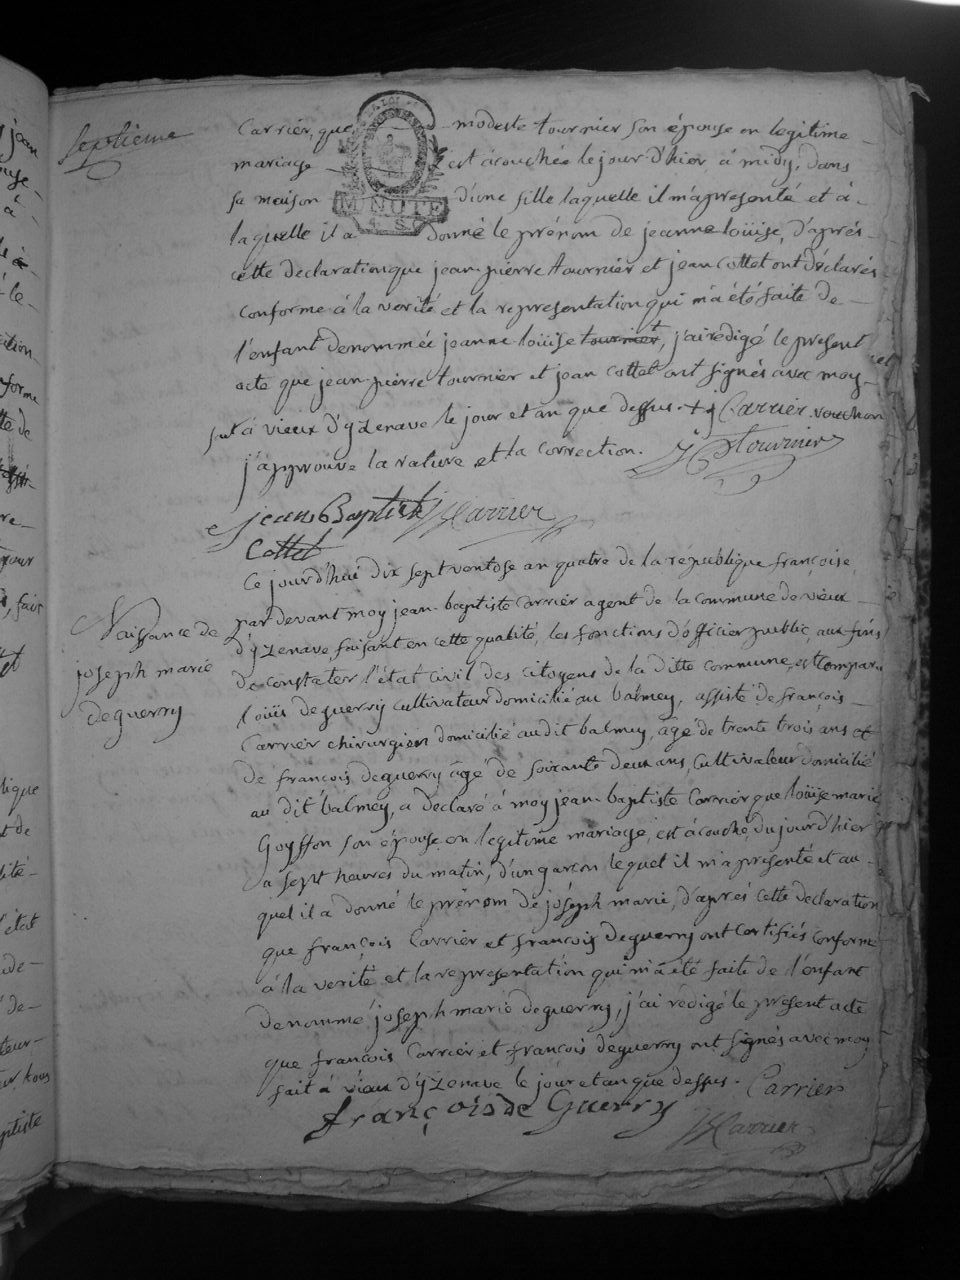 Septieme
Carrier, que modeste tournier son épouse en legitime
mariage est acouchée le jour d'hier, à midy, dans
sa maison d'une fille laquelle il m'a presenté et à
laquelle il a donné le prénom de jeanne loüise, d'après
cette declaration que jean-pierre tournier et jean cottet ont déclarés
conforme à la verité et la representation qui m'a été faite de
l'enfant denommée jeanne loüise tournier, j'ai rédigé le present
acte que jean-pierre tournier et jean cottet ont signés avec moy
fait à vieux d'yzenave le jour et an que dessus. + j Carrier vouchon
j'approuve la rature et la correction. J P Tournier
jean Baptiste Carrier
Cottet
Naissance de
joseph marie
deguerry
Ce jourd'hui dix sept ventose an quatre de la république françoise,
par devant moy jean-baptiste Carrier agent de la commune de vieux
d'yzenave faisant en cette qualité, les fonctions d'officier public, aux fins
de constater l'état civil des citoyens de la ditte commune, est comparu
loüis deguerry cultivateur domicilié au balmey, assisté de françois
Carrier chirurgien domicilié au dit balmey, agé de trente trois ans et
de françois deguerry agé de soixante deux ans, Cultivateur domicilié
au dit balmey, a declaré à moy jean-baptiste Carrier que loüise marie
Goyffon son épouse en legitime mariage, est acouché, du jourd'hier
a sept heures du matin, d'un garçon lequel il m'a presenté et au
quel il a donné le prénom de joseph marie, d'après cette declaration
que françois Carrier et françois deguerry ont certifiés conforme
à la verité et la representation qui m'a été faite de l'enfant
denommé joseph marie deguerry, j'ai rédigé le present acte
que françois Carrier et françois deguerry ont signés avec moy
fait à vieux d'yzenave le jour et an que dessus. Carrier
françois de Guerry
Carrier